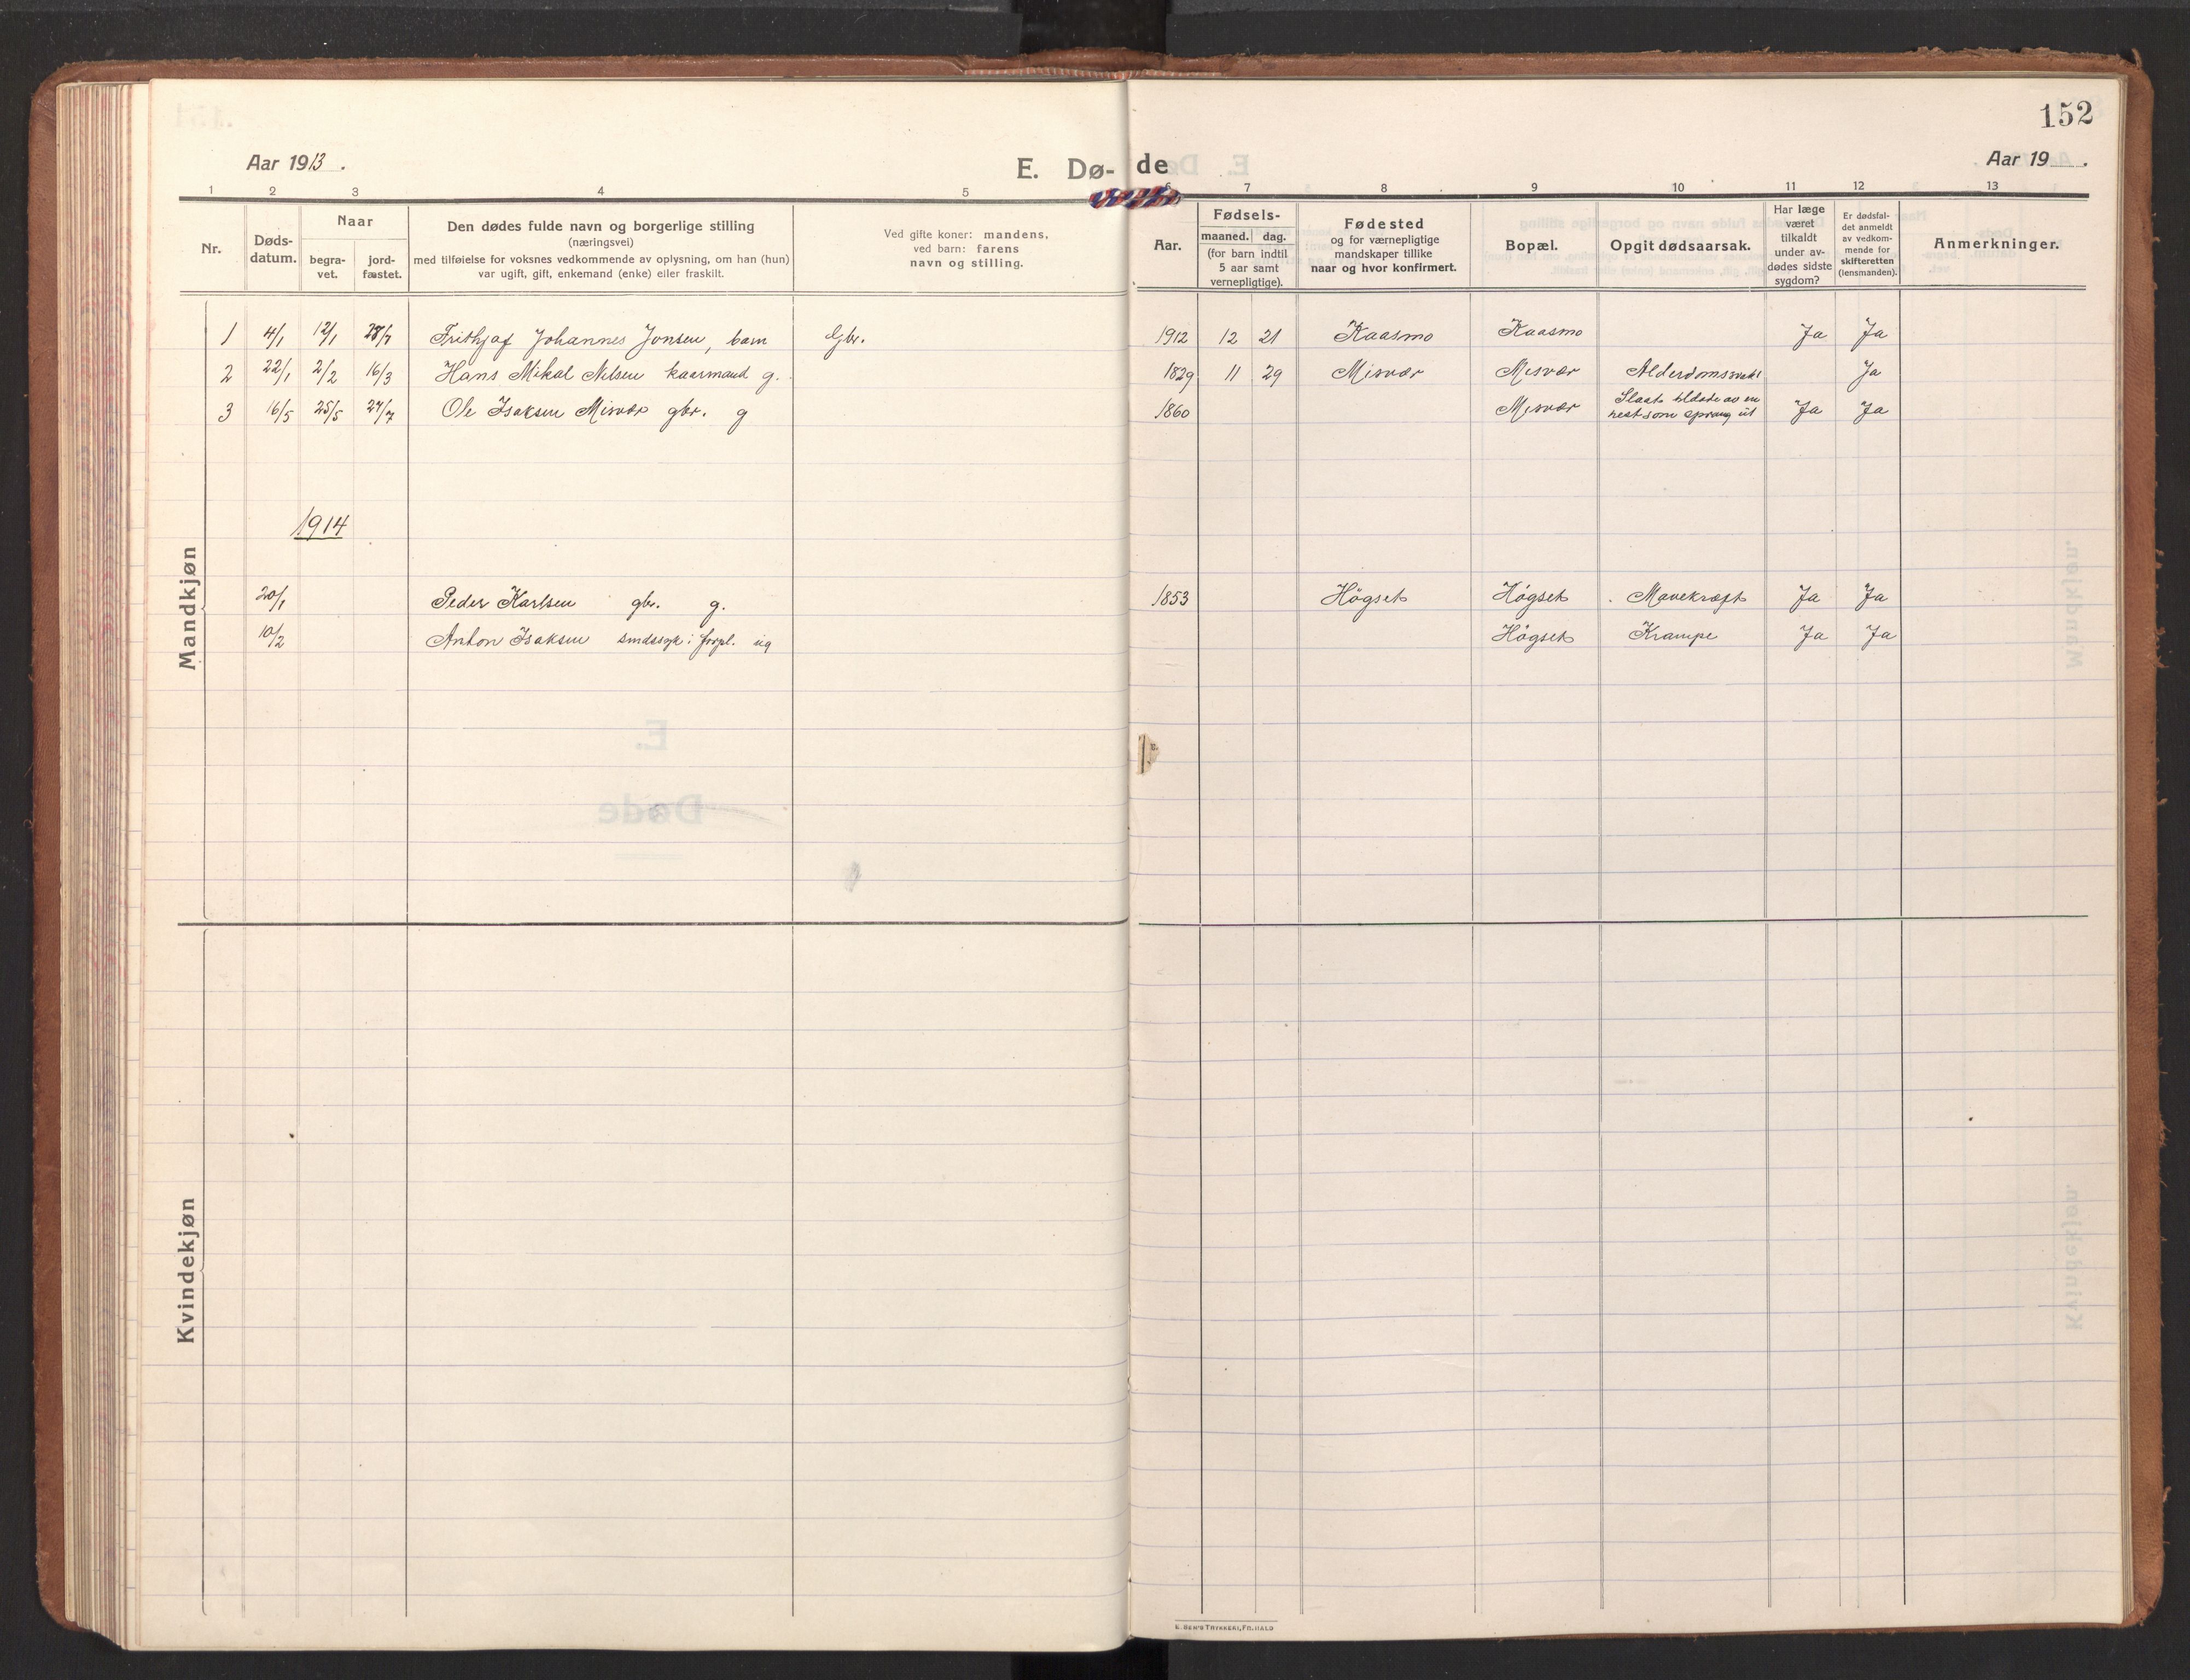 152
Aar 1913.
E. Dø- de
Aar 19 .
1 2 3 4 5 6 7 8 9 10 11 12 13
Nr.
Døds-
datum.
Naar
begra-
vet.
jord-
fæstet.
Den dødes fulde navn og borgerlige stilling
(næringsvei)
med tilføielse for voksnes vedkommende av oplysning, om han (hun)
var ugift, gift, enkemand (enke) eller fraskilt.
Ved gifte koner: mandens,
ved barn: farens
navn og stilling.
Aar.
Fødsels-
maaned. dag.
(for barn indtil
5 aar samt
vernepligtige).
Fødested
og for værnepligtige
mandskaper tillike
naar og hvor konfirmert.
Bopæl.
Opgit dødsaarsak.
Har læge
været
tilkaldt
under av-
dødes sidste
sygdom?
Er dødsfal-
det anmeldt
av vedkom-
mende for
skifteretten
(lensmanden).
Anmerkninger.
Mandkjøn
1 4/1 12/1 Frithjof Johannes Jonsen, barn Gbr. 1912 12 21 Kaasmo Kaasmo Ja Ja
2 22/1 2/2 16/3 Hans Mikal Nilsen kaarmand g. 1829 11 29 Misvær Misvær Alderdomssvakh Ja
3 16/5 25/5 27/7 Ole Isaksen Misvær gbr. g 1860 Misvær Slaat tildøde av en
hest som sprang ut Ja Ja
1914
20/1 Peder Karlsen gbr. g. 1853 Högset Högset Mavekræft Ja Ja
10/2 Anton Isaksen sindssyk i forpl. ug Högset Krampe Ja Ja
Kvindekjøn